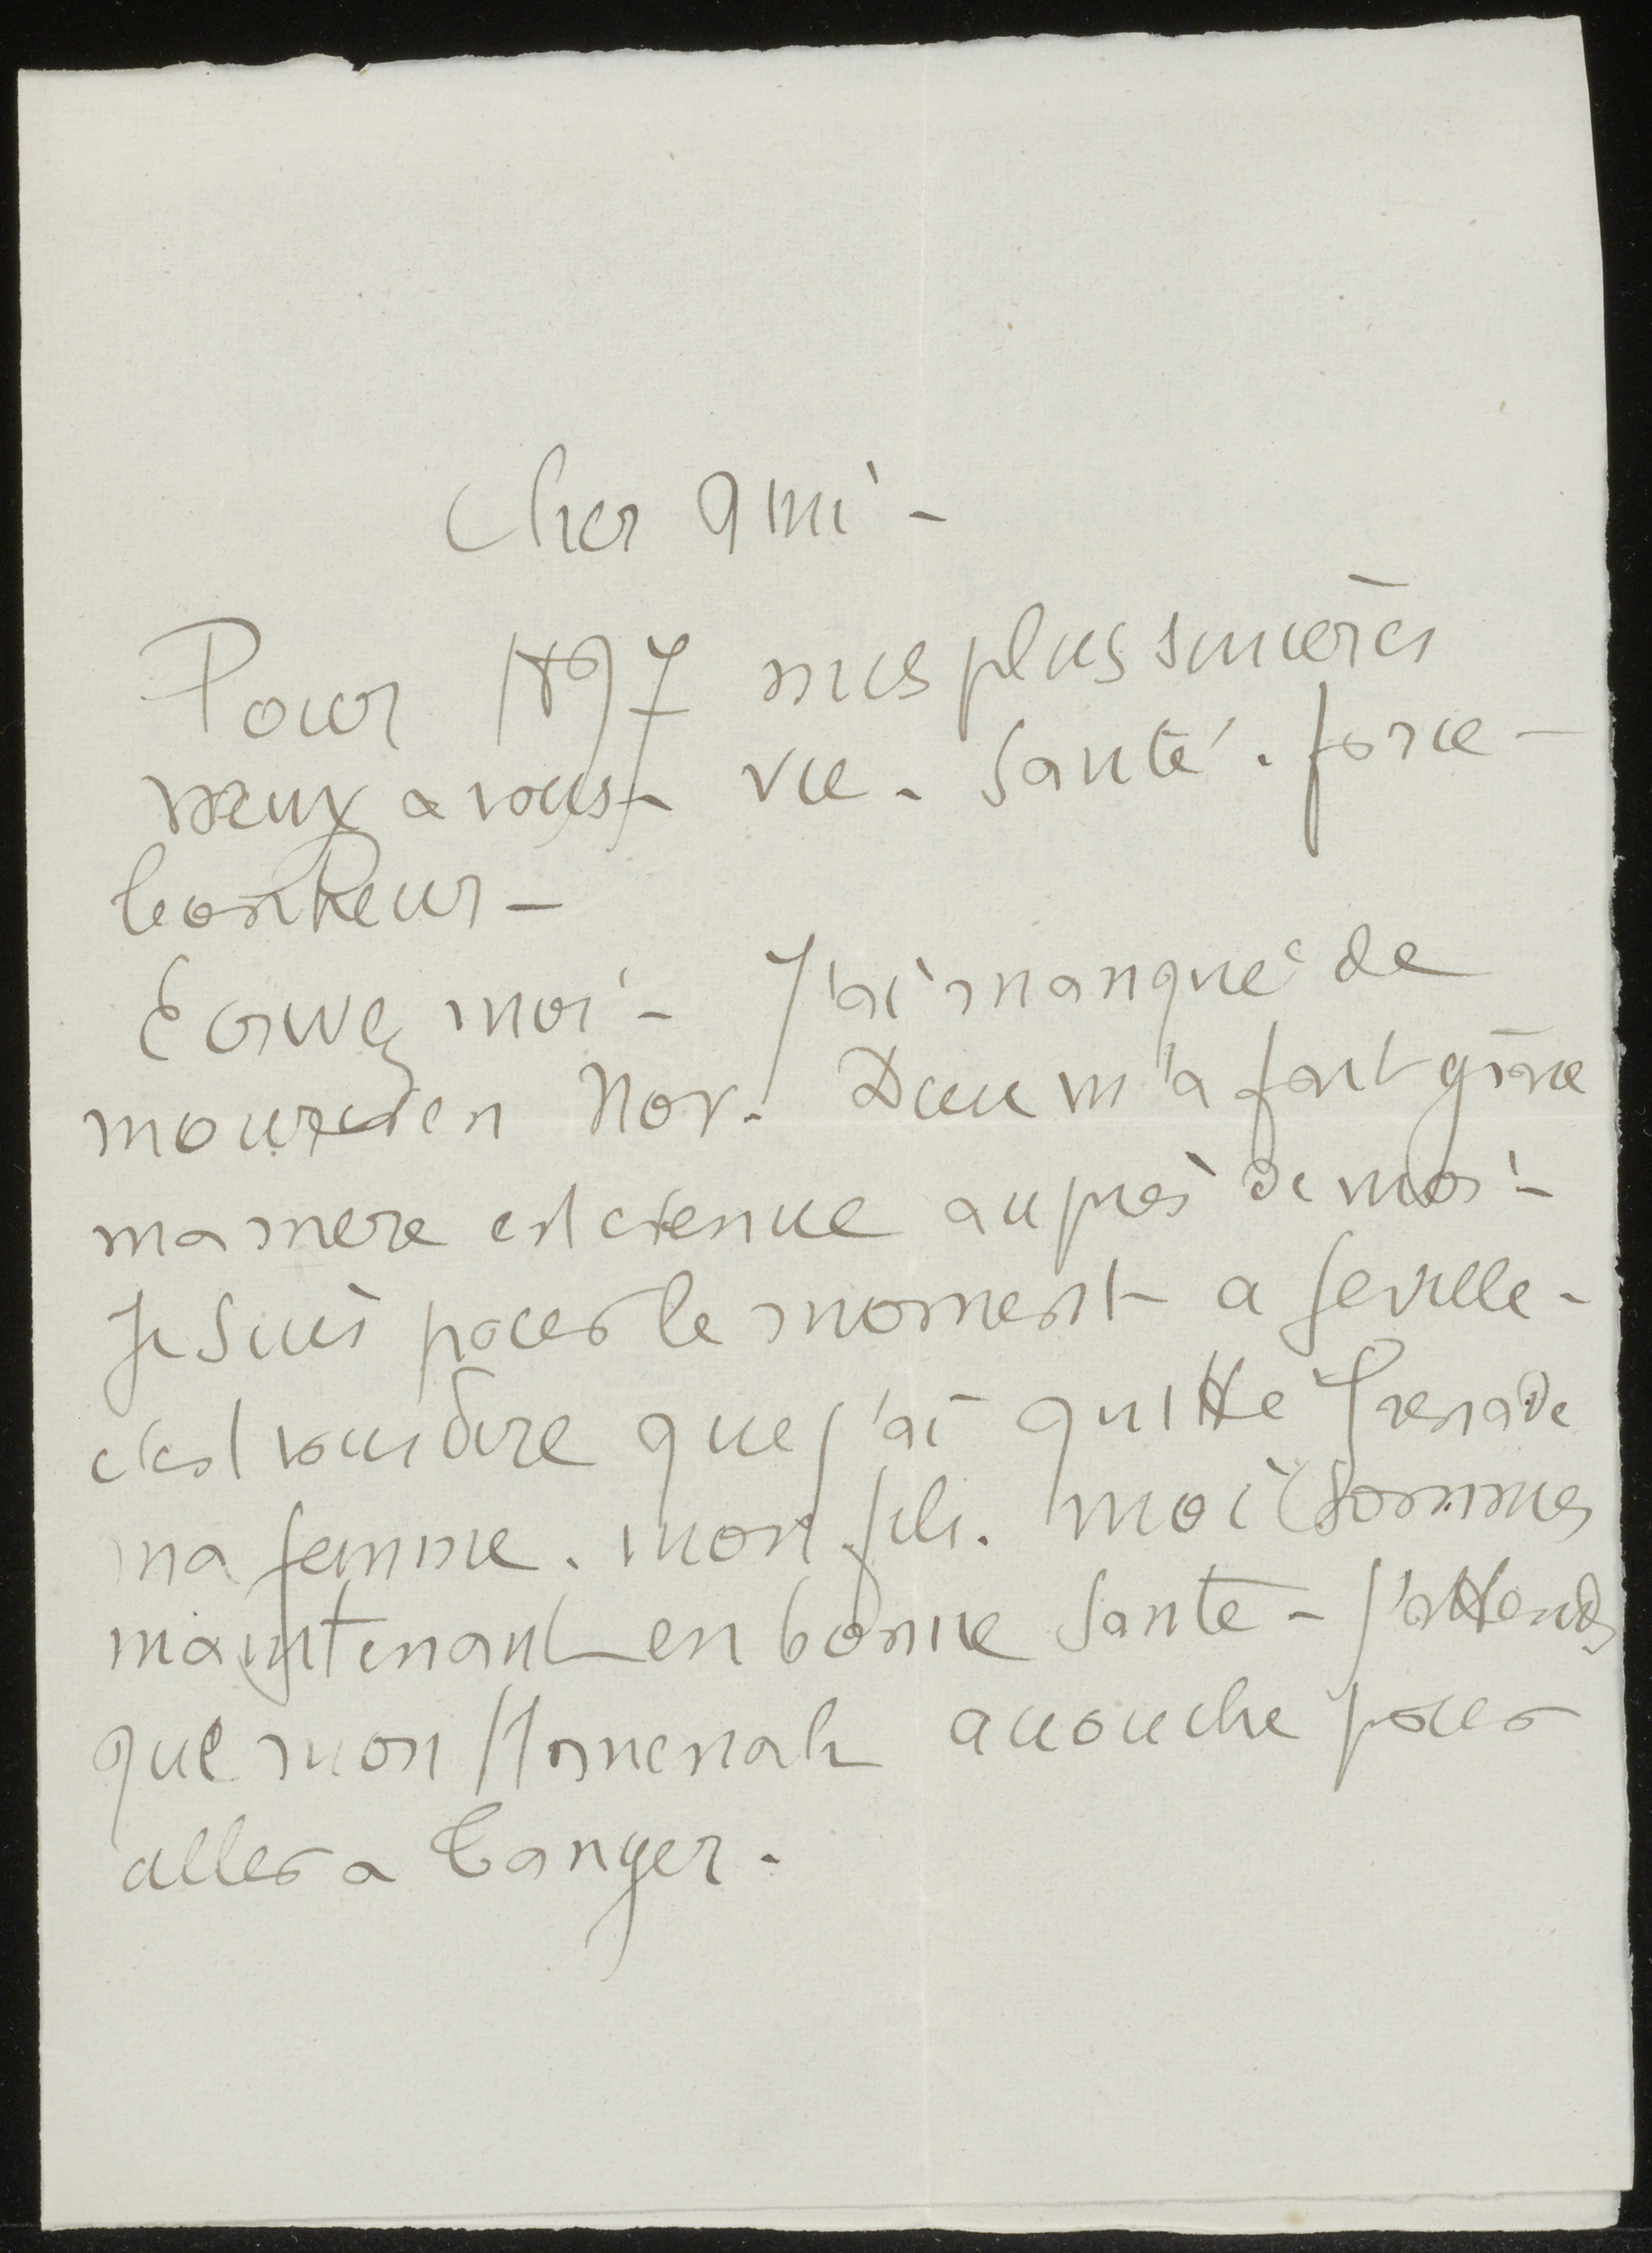 Cher ami -
Pour 1897 mes plus sincères
vœux a vous - vie - Santé . force -
bonheur -
Ecrivez moi - J'ai manqué de
mourir en Nov. Dieu m'a fait grâce
ma mere est venue auprès de moi -
Je suis pour le moment a Seville -
c'est vous dire que j'ai quitté Grenade
ma femme . mon fils . moi sommes
maintenant en bonne Santé - J'attends
que mon accouche pour
aller a Tanger .